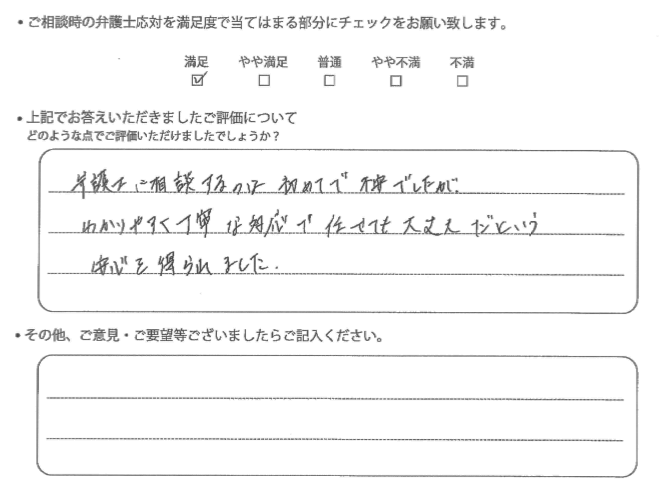 ・ご相談時の弁護士応対を満足度で当てはまる部分にチェックをお願い致します。
満足 やや満足 普通 やや不満 不満
☑ □ □ □ □
・上記でお答えいただきましたご評価について
どのような点でご評価いただけましたでしょうか？
弁護士に相談するのは初めてで不安でしたが、
わかりやすく丁寧な対応で任せても大丈夫だという
安心を得られました。
・その他、ご意見・ご要望等ございましたらご記入ください。